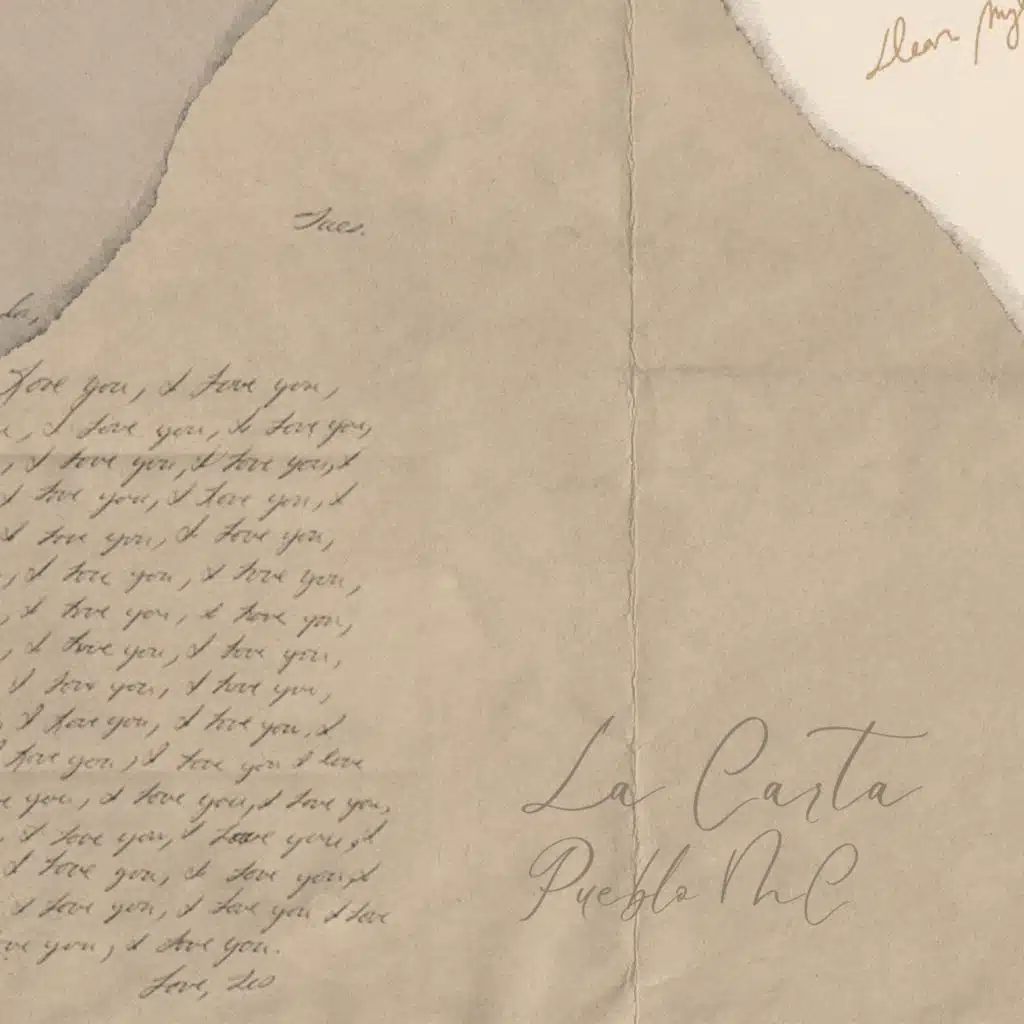 Dear
Tues.
love you, I love you,
I love you, I love you,
, I love you, I love you, I
I love you, I love you, I
I love you, I love you,
, I love you, I love you,
, I love you, I love you,
, I love you, I love you,
I love you, I love you,
I love you, I love you, I
love you, I love you I love
you, I love you, I love you,
I love you, I love you, I
I love you, I love you, I
I love you, I love you I love
you, I love you.
Love, Leo
La Carta
Pueblo MC